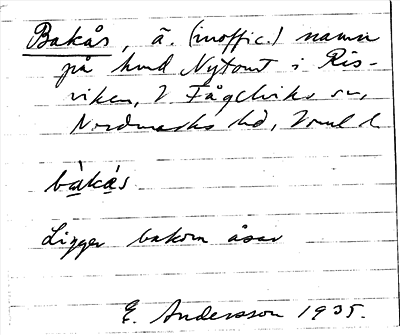 Bakås, ä. (inoffic.) namn
på hmd Nytomt i Ris-
viken, V Fågelviks sn,
Nordmarks hd, Vrml l.
bàkás
Ligger bakom åsar
E. Andersson 1935.